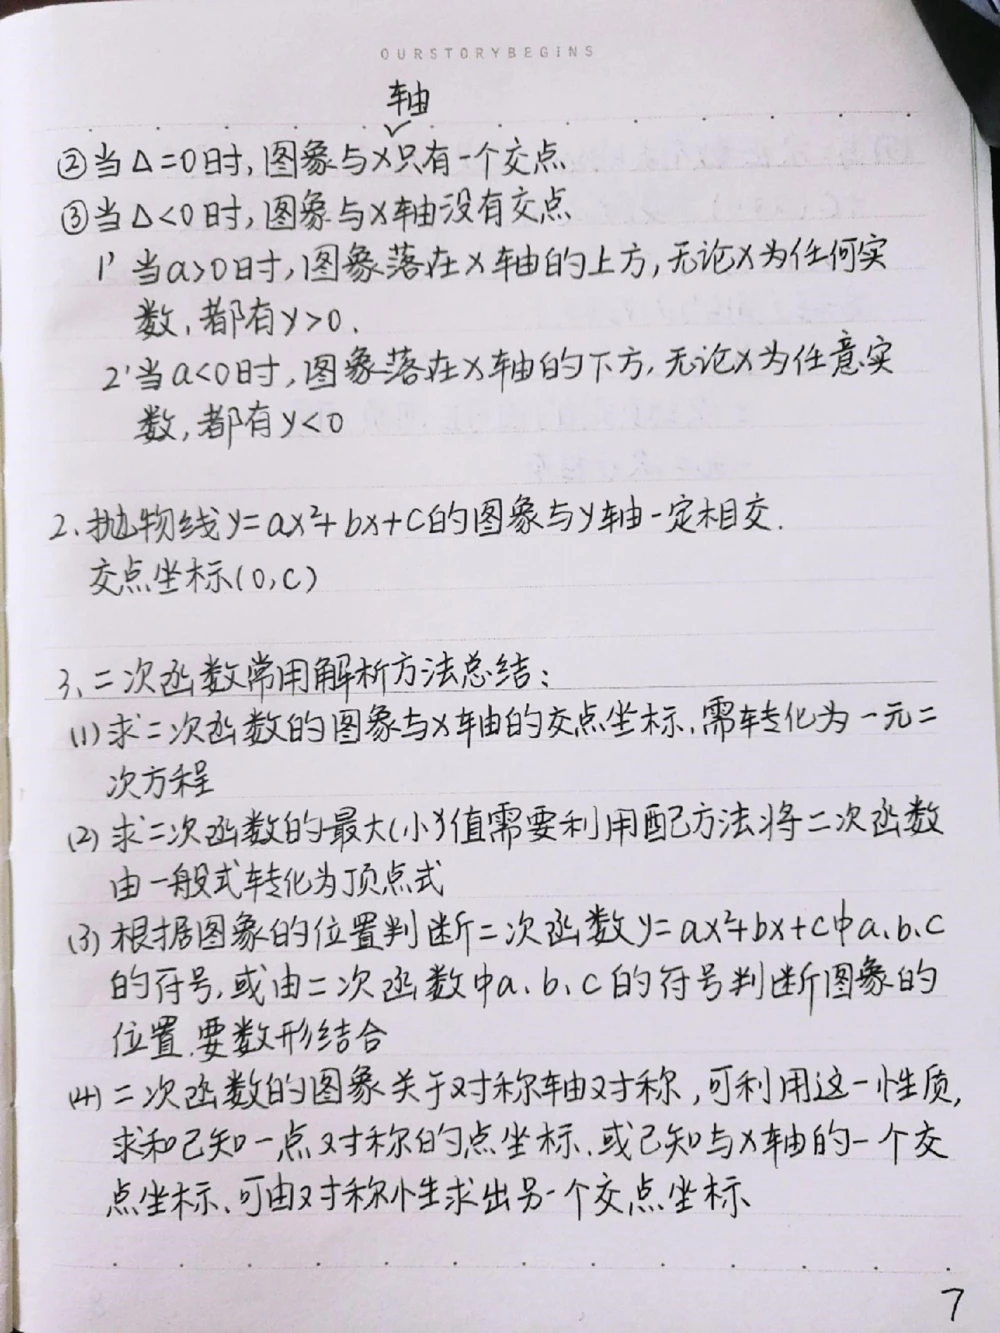 OURSTORYBEGINS
轴
②当Δ=0时,图象与x只有一个交点
③当Δ<0时,图象与x轴没有交点
1' 当a>0时,图象落在x轴的上方,无论x为任何实
数,都有y>0.
2'当a<0时,图象落在x轴的下方,无论x为任意实
数,都有y<0
2、抛物线y=ax²+bx+c的图象与y轴一定相交.
交点坐标(0,c)
3、二次函数常用解析方法总结:
(1)求二次函数的图象与x轴的交点坐标,需转化为一元二
次方程
(2)求二次函数的最大(小)值需要利用配方法将二次函数
由一般式转化为顶点式
(3)根据图象的位置判断二次函数y=ax²+bx+c中a、b、c
的符号,或由二次函数中a、b、c的符号判断图象的
位置.要数形结合
(4)二次函数的图象关于对称轴对称,可利用这一性质,
求和已知一点对称的点坐标、或已知与x轴的一个交
点坐标、可由对称性求出另一个交点坐标
7